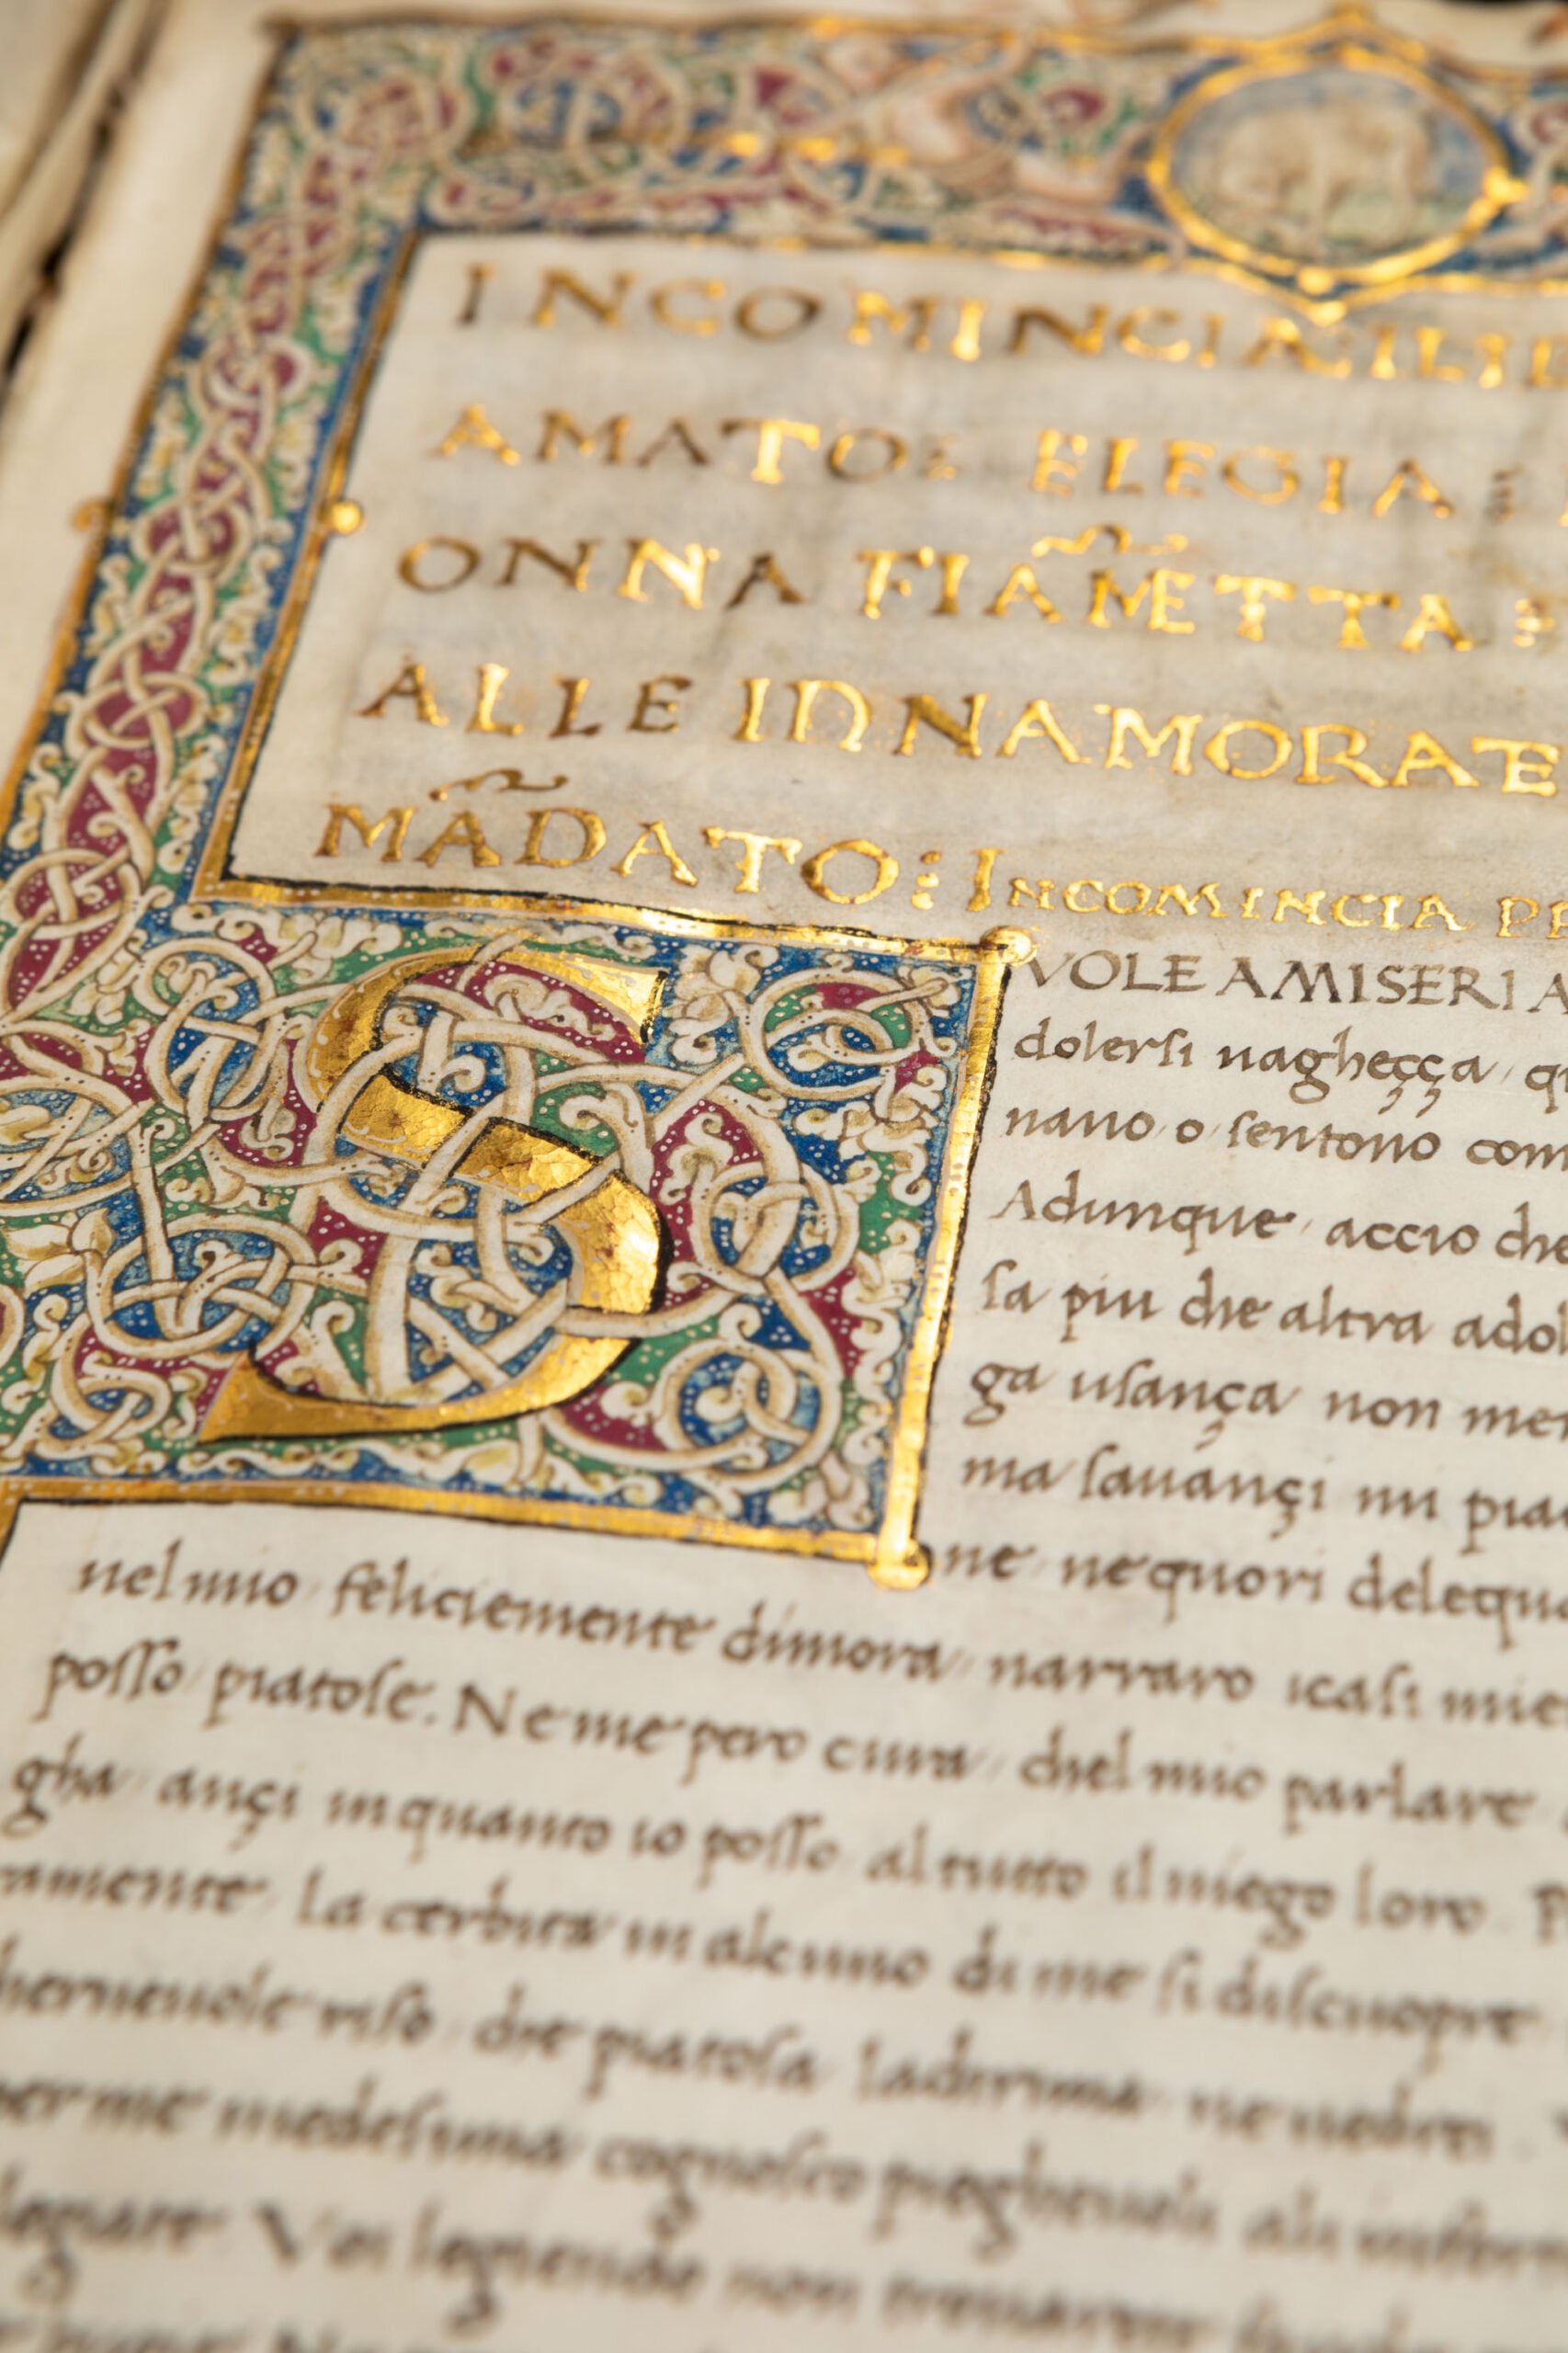 INCOMINCIA ILLI
AMATO: ELEGIA:
ONNA FIAM̃ETTA:
ALLE INNAMORATE
MÃDATO: INCOMINCIA PR
S
VOLE A MISERI A
dolerſi uagheçça, q
nano, o ſentono com
Adunque, accio che
ſa piu che altra adol
ga uſança non me
ma ſauançi mi pia
ne, nequori delequ
nel mio feliciemente dimora, narraro icaſi mie
poſſo, piatoſe. Ne me pero cura, chel mio parlare
gha, ançi inquanto io poſſo, al tutto il niego loro. P
ramente. La cerbita in alcuno di me ſi diſcuopre.
herneuole riſo, che piatoſa lacrima ne uedrei.
per me medeſima cognoſco pieghevoli ali infor
legiare. Voi legiendo non trouarete